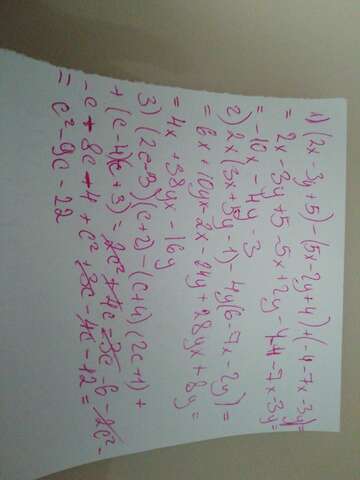 1) (2x-3y+5)-(5x-2y+4)+(-4-7x-3y)=
= 2x-3y+5-5x+2y-4-4-7x-3y=
= -10x-4y-3
2) 2x(3x+5y-1)-4y(6-7x-2y)=
= 6x+10yx-2x-24y+28yx+8y=
= 4x+38yx-16y
3) (2c-3)(c+2)-(c+4)(2c+1)+
+(c-4)(c+3)=2c²+4c-3c-6-2c²-
-c-8c-4+c²+3c-4c-12=
= c²-9c-22